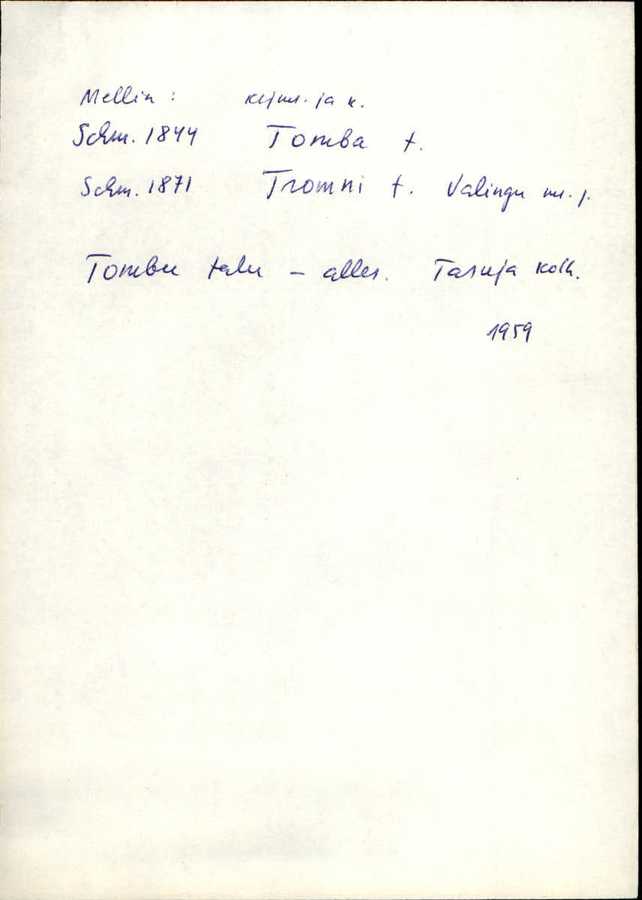 Mellin: ja k.
Schm. 1844 Tomba t.
Schm. 1871 Tromni t. Valingu m. j.
Tombu talu – alles. Tasuja kolh.
1959